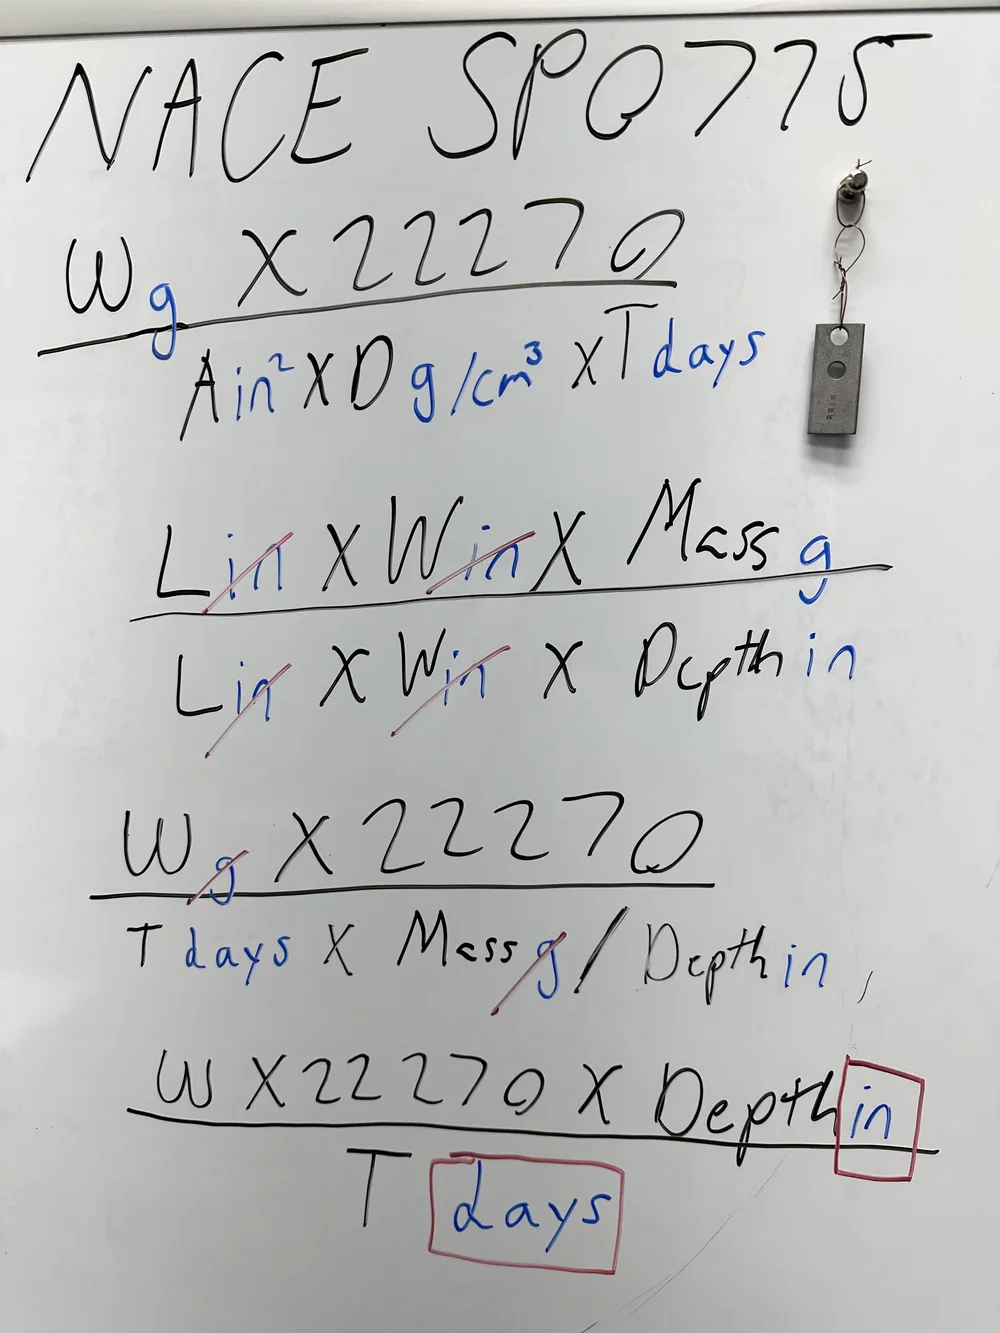 NACE SP0775
Wg X 22270
A in² X D g/cm³ x T days
L in X W in X Mass g
L in X W in X Depth in
W g X 22270
T days X Mass g / Depth in
W X 22270 X Depth in
T days